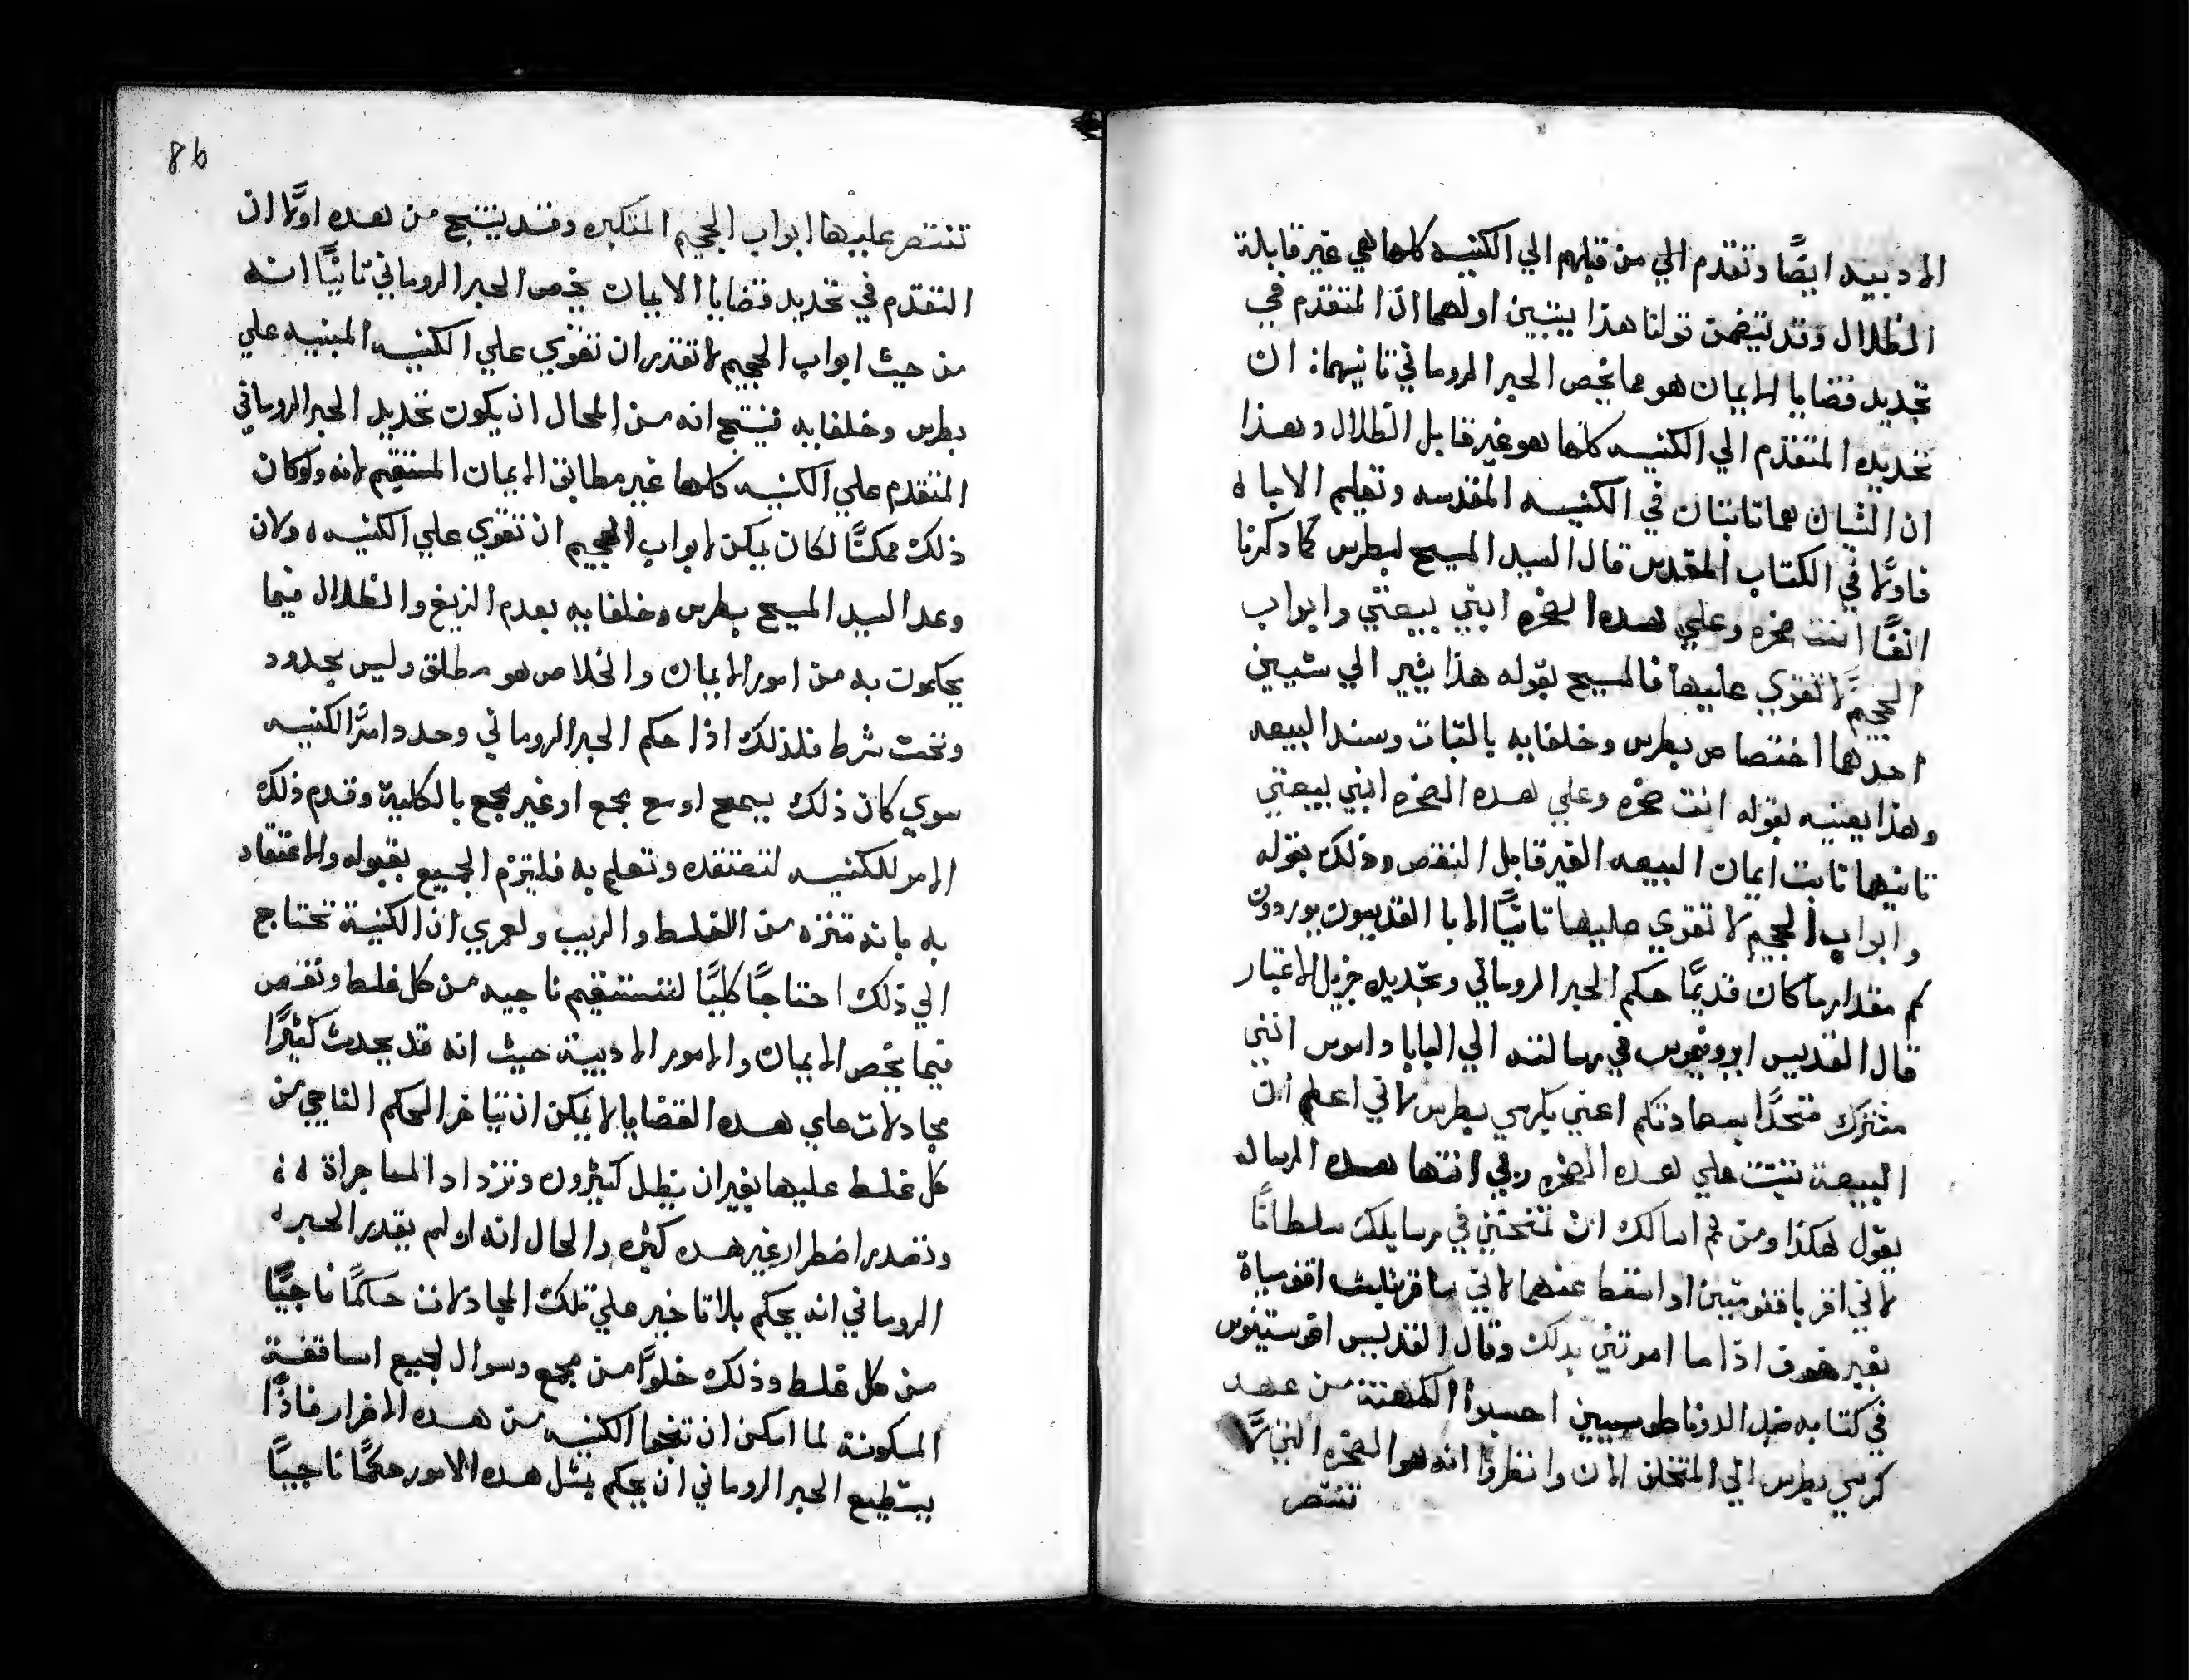 الادبيه ايضًا وتقدم الي من قبلهم الي الكنيسه كلها هي غير قابلة
الظلال وقد يتضمن قولنا هذا يتبين اولهما ان المتقدم في
تحديد قضايا الايمان هو مما يخص الحبر الروماني ثانيهما: ان
تحديده المتقدم الي الكنيسه كلها هو غير قابل الظلال وهذا
ان الشيان هما ثابتان في الكنيسه المقدسه وتعليم الابا ه
فاولًا في الكتاب المقدس قال السيد المسيح لبطرس كما دكرنا
انفًا انت صخره وعلي هده الصخره ابني بيعتي وابواب
الجحيم لا تقوي عليها فالمسيح بقوله هذا يشير الي شيين
احدها اختصاص بطرس وخلفايه بالثبات وسند البيعه
وهذا يعنيه بقوله انت صخره وعلي هده الصخره ابني بيعتي
ثانيها ثابت ايمان البيعه الغير قابل النقص وذلك بقوله
وابواب الجحيم لا تقوي عليها ثانيًا الابا القديسون يوردون
كم مقدار ما كان قديمًا حكم الحبر الروماني وتحديده جزيل الاعتبار
قال القديس ايرونيموس في رسالته الي البابا داموس انني
مشترك متحدًا بسعادتكم اعني بكرسي بطرس لاني اعلم ان
البيعة تبتت علي هده الصخره وفي انتها هده الرساله
يقول هكذا ومن ثم اسالك ان تمنحني في رسايلك سلطانًا
لاني اقر باقنومين او اسقط عنهما لاني ساقر بثلث اقنومياة
بغير خوف اذا ما امرتني بدلك وقال القديس اغوستينوس
في كتابه ضد الدوناطوسيين احسبوا الكهنة من عهد
كرسي بطرس الي المتخلف الان وانظروا انه هو الصخره التي لا
تنتصر
86
تنتصر عليها ابواب الجحيم المتكبره وقد ينتج من هده اولًا ان
التقدم في تحديد قضايا الايمان يخص الحبر الروماني ثانيًا انه
من حيث ابواب الجحيم لا تقدر ان تقوي علي الكنيسه المبنيه علي
بطرس وخلفايه فينتج انه من المحال ان يكون تحديد الحبر الروماني
المتقدم علي الكنيسه كلها غير مطابق الايمان المستقيم لانه ولو كان
ذلك ممكنًا لكان يمكن لابواب الجحيم ان تقوي علي الكنيسه ه ولان
وعد السيد المسيح بطرس وخلفايه بعدم الزيغ والظلال فيما
يحكمون به من امور الايمان والخلاص هو مطلق وليس بحدود
وتحت شرط فلذلك اذا حكم الحبر الروماني وحدد امرًا لكنيسه
سوي كان ذلك بمجمع او مع مجمع او غير مجمع بالكلية وقدم ذلك
الامر للكنيسه لتعتقده وتعلم به فليتزم الجميع بقبوله والاعتقاد
به بانه متنزه من الغلط والريب ولعمري ان الكنيسة تحتاج
الي ذلك احتاجًا كليًا لتستقيم ناجيه من كل غلط ونقص
فيما يخص الايمان والامور الادبية حيث انه قد يحدث كثيرًا
مجادلات علي هده القضايا لا يمكن ان يتاخر الحكم الناجي من
كل غلط عليها بغير ان يظل كثيرون وتزداد المشاجراة ه ه
وتصدر اضطرار غير هده كثيره والحال انه لو لم يقدر الحبر ه
الروماني انه يحكم بلا تاخير علي تلك المجادلات حكمًا ناجيًا
من كل غلط وذلك خلوًا من مجمع وسوال لجميع اساقفة
المسكونة لما امكن ان تنجوا الكنيسه من هده الاضرار فاذًا
يستطيع الحبر الروماني ان يحكم بمثل هده الامور حكمًا ناجيًا